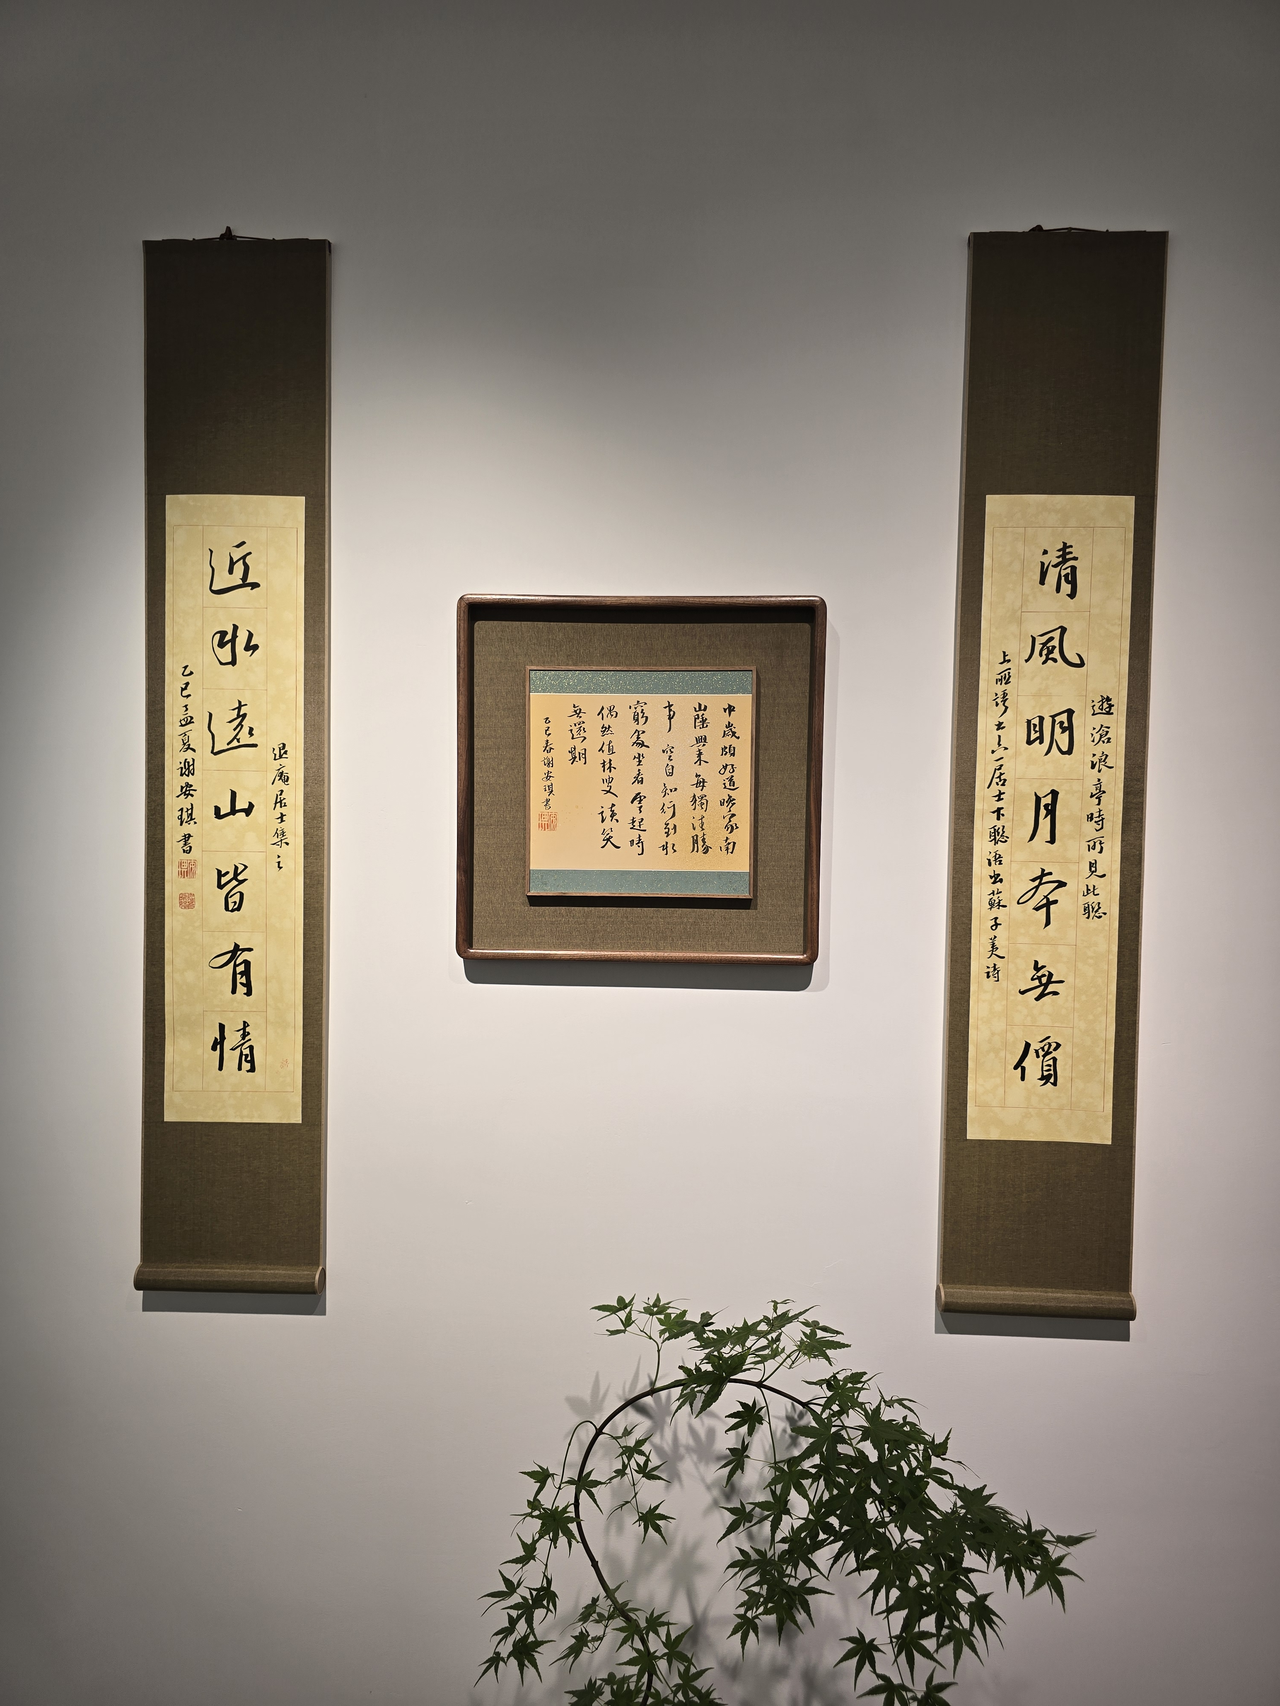 遊滄浪亭時所見此聯
清風明月本無價
上聯語出六一居士下聯語出蘇子美詩
中歲頗好道晚家南
山陲興來每獨往勝
事空自知行到水
窮處坐看雲起時
偶然值林叟談笑
無還期
乙巳春謝安琪書
退庵居士集之
近水遠山皆有情
乙巳孟夏謝安琪書